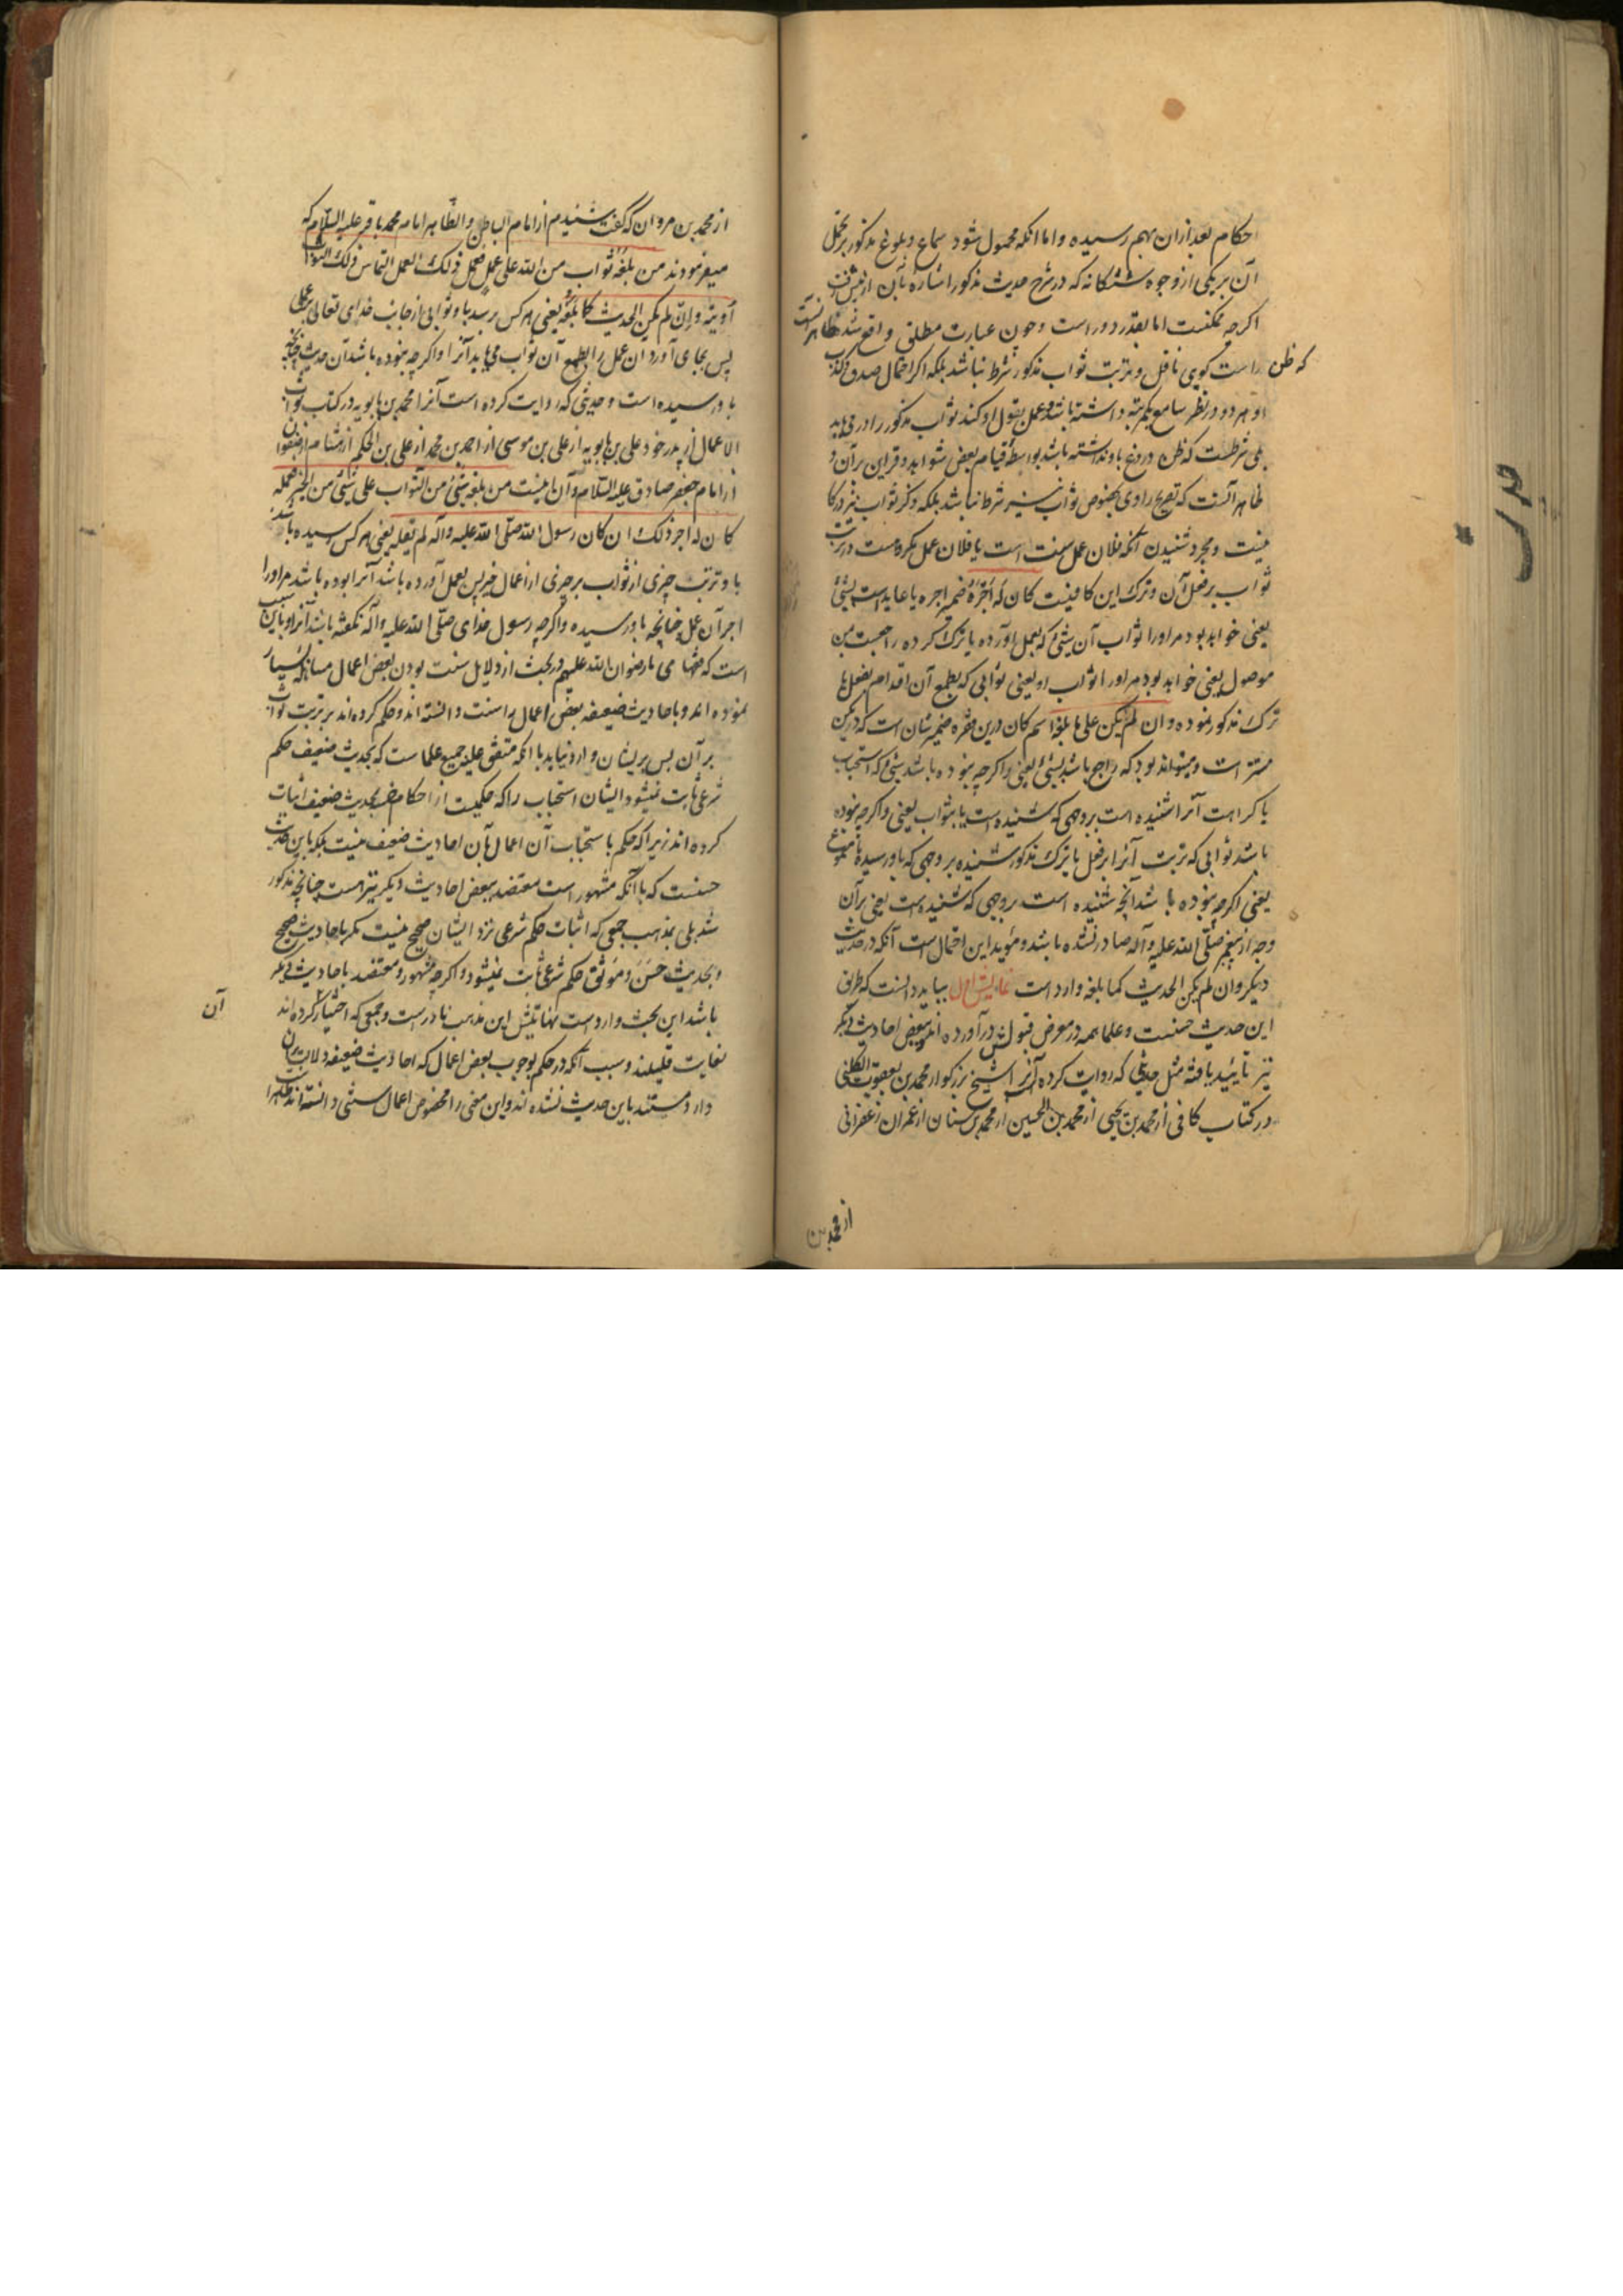 احکام بعد ازان بهم رسیده و اما انکه محمول شود سماع و بلوغ مذکور بر تحمل
آن بر یکی از وجوه ششکانه که در شرح حدیث مذکور اشاره بآن از پیش رفت
اکرچه ممکنست اما بعد دور است و چون عبارت مطلق واقع شد ظاهر آنست
که ظن راست کوی ناقل در ترتب ثواب مذکور شرط نباشد بلکه اکر احتمال صدق و کذب
او هر دو در نظر سامع یکمرتبه داشته باشد و عمل بقول او کند ثواب مذکور را درمی یابد
بلی شرطست که ظن دروغ باو نداشته باشد بواسطه قیام بعض شواهد و قراین بر آن و
ظاهر آنست که تصریح راوی بخصوص ثواب نیز شرط نباشد بلکه ذکر ثواب نیز در کار
نیست و مجرد شنیدن آنکه فلان عمل سنت است یا فلان عمل مکروهست در ترتب
ثواب بر فعل آن و ترک این کافیست کان له اجره ضمیر اجره یا عاید است بشئ
یعنی خواهد بود مر او را ثواب آن شئ که بعمل آورده یا ترک کرده راجعست بمن
موصول یعنی خواهد بود مر او را ثواب او یعنی ثوابی که بطمع آن اقدام بفعل یا
ترک مذکور نموده و ان لم یکن علی ما بلغه اسم کان درین فقره ضمیر شان است که در یکن
مستتر است و میتواند بود که راجع باشد بشئ یعنی و اکرچه نبوده باشد شئ که استحباب
یا کراهت آنرا شنیده است بر وجهی که شنیده است یا بثواب یعنی و اکرچه نبوده
باشد ثوابی که ترتب آنرا بر فعل یا ترک مذکور شنیده بر وجهی که باو رسیده یا بمسموع
یعنی اکرچه نبوده باشد آنچه شنیده است بر وجهی که شنیده است یعنی بر آن
وجه از پیغمبر صلّی الله علیه و آله صادر نشده باشد و مؤید این احتمال است آنکه در حدیث
دیکر و ان لم یکن الحدیث کما بلغه وارد است بباید دانست که طرق
این حدیث حسنست و علما همه در معرض قبولش در آورده اند و ببعض احادیث دیکر
نیز تایید یافته مثل حدیثی که روایت کرده آنرا شیخ بزرکوار محمد بن یعقوب الکلینی
در کتاب کافی از محمد بن یحیی از محمد بن الحسین از محمد بن سنان از عمران زعفرانی
از محمد بن
از محمد بن مروان که گفت شنیدم از امام الباطن و الظاهر امام محمد باقر علیه السلام که
میفرمودند من بلغه ثواب من الله علی عمل فعمل ذلک العمل التماس ذلک الثواب
أوتیه و ان لم یکن الحدیث کما بلغه یعنی هر کس برسد باو ثوابی از جانب خدای تعالی بر عملی
پس بجای آورد ان عمل را بطمع آن ثواب می یابد آنرا و اکرچه نبوده باشد آن حدیث چنانچه
باو رسیده است و حدیثی که روایت کرده است آنرا محمد بن بابویه در کتاب ثواب
الاعمال از پدر خود علی بن بابویه از علی بن موسی از احمد بن محمد از علی بن الحکم از هشام از صفوان
از امام جعفر صادق علیه السلام و آن اینست من بلغه شئ من الثواب علی شئ من الخیر فعمله
کان له اجر ذلک و ان کان رسول الله صلّی الله علیه و آله لم یقله یعنی هر کس رسیده باشد
باو ترتب چیزی از ثواب بر چیزی از اعمال خیر پس بعمل آورده باشد آنرا بوده باشد مر او را
اجر آن عمل چنانچه باو رسیده و اکرچه رسول خدای صلّی الله علیه و آله نکفته باشد آنرا و باین سبب
است که فقهای ما رضوان الله علیهم در بحث از دلایل سنت بودن بعض اعمال مساهله بسیار
نموده اند و باحادیث ضعیفه بعض اعمال را سنت دانسته اند و حکم کرده اند بر ترتب ثواب
بر آن پس بریشان وارد نیاید با آنکه متفق علیه جمیع علماست که بحدیث ضعیف حکم
شرعی ثابت نمیشود ایشان استحباب را که حکمیست از احکام خمسه بحدیث ضعیف اثبات
کرده اند زیرا که حکم باستحباب آن اعمال بآن احادیث ضعیف نیست بلکه باین حدیث
حسنست که با آنکه مشهور است معتضد ببعض احادیث دیکر نیز هست چنانچه مذکور
شد بلی بمذهب جمعی که اثبات حکم شرعی نزد ایشان صحیح نیست مکر باحادیث صحیح
و بحدیث حسن و موثق حکم شرعی ثابت نمیشود و اکرچه مشهور و معتضد باحادیث دیکر
باشد این بحث وارد است نهایتش این مذهب نادرست و جمعی که اختیار کرده اند آن
بغایت قلیلند و سبب آنکه در حکم بوجوب بعض اعمال که احادیث ضعیفه دلالت بر آن
دارد مستند باین حدیث نشده اند و این معنی را مخصوص اعمال سنتی دانسته اند